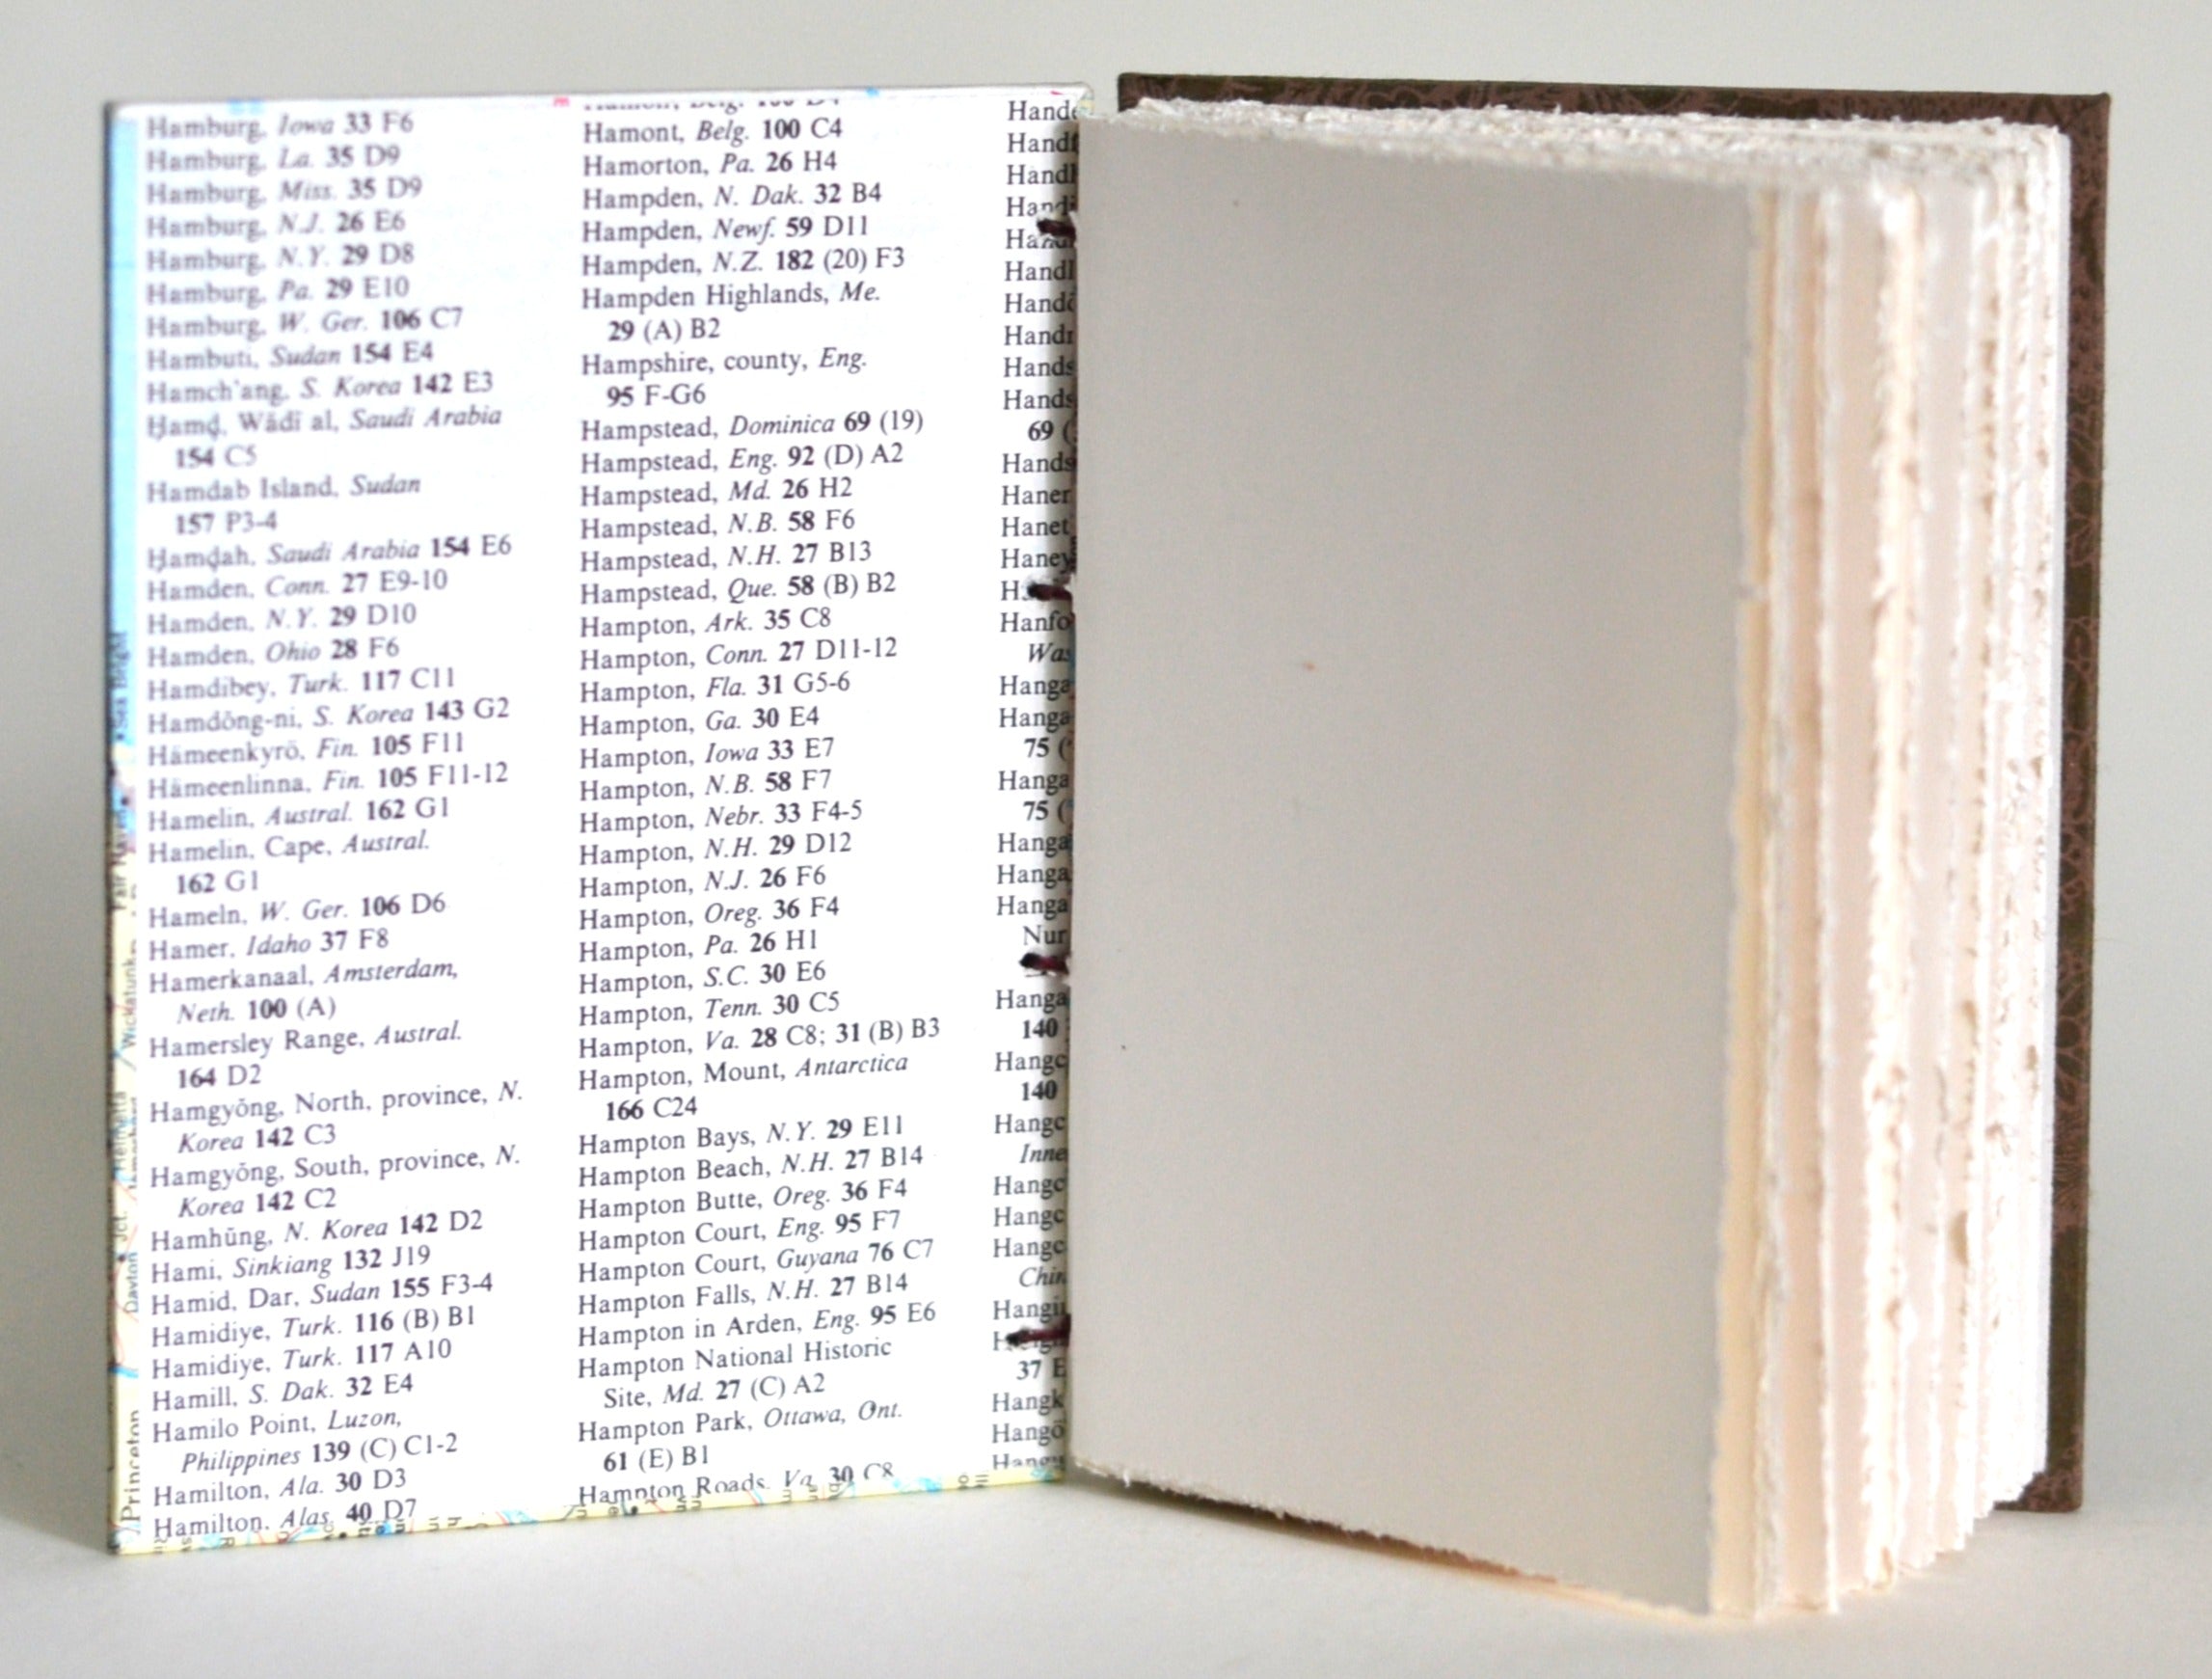 Hamburg, Iowa 33 F6
Hamburg, La. 35 D9
Hamburg, Miss. 35 D9
Hamburg, N.J. 26 E6
Hamburg, N.Y. 29 D8
Hamburg, Pa. 29 E10
Hamburg, W. Ger. 106 C7
Hambuti, Sudan 154 E4
Hamch'ang, S. Korea 142 E3
Ḥamḍ, Wādī al, Saudi Arabia
154 C5
Hamdab Island, Sudan
157 P3-4
Ḥamḍah, Saudi Arabia 154 E6
Hamden, Conn. 27 E9-10
Hamden, N.Y. 29 D10
Hamden, Ohio 28 F6
Hamdibey, Turk. 117 C11
Hamdŏng-ni, S. Korea 143 G2
Hämeenkyrö, Fin. 105 F11
Hämeenlinna, Fin. 105 F11-12
Hamelin, Austral. 162 G1
Hamelin, Cape, Austral.
162 G1
Hameln, W. Ger. 106 D6
Hamer, Idaho 37 F8
Hamerkanaal, Amsterdam,
Neth. 100 (A)
Hamersley Range, Austral.
164 D2
Hamgyŏng, North, province, N.
Korea 142 C3
Hamgyŏng, South, province, N.
Korea 142 C2
Hamhŭng, N. Korea 142 D2
Hami, Sinkiang 132 J19
Hamid, Dar, Sudan 155 F3-4
Hamidiye, Turk. 116 (B) B1
Hamidiye, Turk. 117 A10
Hamill, S. Dak. 32 E4
Hamilo Point, Luzon,
Philippines 139 (C) C1-2
Hamilton, Ala. 30 D3
Hamilton, Alas. 40 D7
Hamont, Belg. 100 C4
Hamorton, Pa. 26 H4
Hampden, N. Dak. 32 B4
Hampden, Newf. 59 D11
Hampden, N.Z. 182 (20) F3
Hampden Highlands, Me.
29 (A) B2
Hampshire, county, Eng.
95 F-G6
Hampstead, Dominica 69 (19)
Hampstead, Eng. 92 (D) A2
Hampstead, Md. 26 H2
Hampstead, N.B. 58 F6
Hampstead, N.H. 27 B13
Hampstead, Que. 58 (B) B2
Hampton, Ark. 35 C8
Hampton, Conn. 27 D11-12
Hampton, Fla. 31 G5-6
Hampton, Ga. 30 E4
Hampton, Iowa 33 E7
Hampton, N.B. 58 F7
Hampton, Nebr. 33 F4-5
Hampton, N.H. 29 D12
Hampton, N.J. 26 F6
Hampton, Oreg. 36 F4
Hampton, Pa. 26 H1
Hampton, S.C. 30 E6
Hampton, Tenn. 30 C5
Hampton, Va. 28 C8; 31 (B) B3
Hampton, Mount, Antarctica
166 C24
Hampton Bays, N.Y. 29 E11
Hampton Beach, N.H. 27 B14
Hampton Butte, Oreg. 36 F4
Hampton Court, Eng. 95 F7
Hampton Court, Guyana 76 C7
Hampton Falls, N.H. 27 B14
Hampton in Arden, Eng. 95 E6
Hampton National Historic
Site, Md. 27 (C) A2
Hampton Park, Ottawa, Ont.
61 (E) B1
Hampton Roads, Va. 30 C8
Hand
Hand
Hand
Hand
Hands
Hands
69 (
Hands
Haner
Hanet
Haney
Hanfo
Was
Hanga
Hanga
75 (
Hanga
75 (
Hanga
Hanga
Hanga
Nur
Hanga
140
Hangc
140
Hangc
Inne
Hangc
Hangc
Hangc
Chin
Hangi
37 E
Hangk
Hangö
Princeton